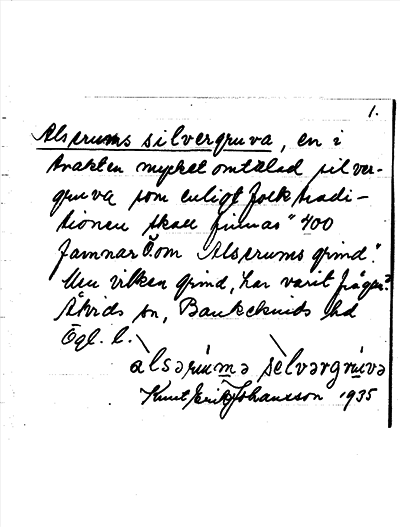 1.
Alserums silvergruva, en i
trakten mycket omtalad silver-
gruva som enligt folktradi-
tionen skall finnas "400
famnar Ö. om Alserums grind".
Men vilken grind, har varit frågan?
Åtvids sn, Bankekinds hd
Ögl. l.
alsərùmə sèlvərgrùva
Knut Erik Johansson 1935